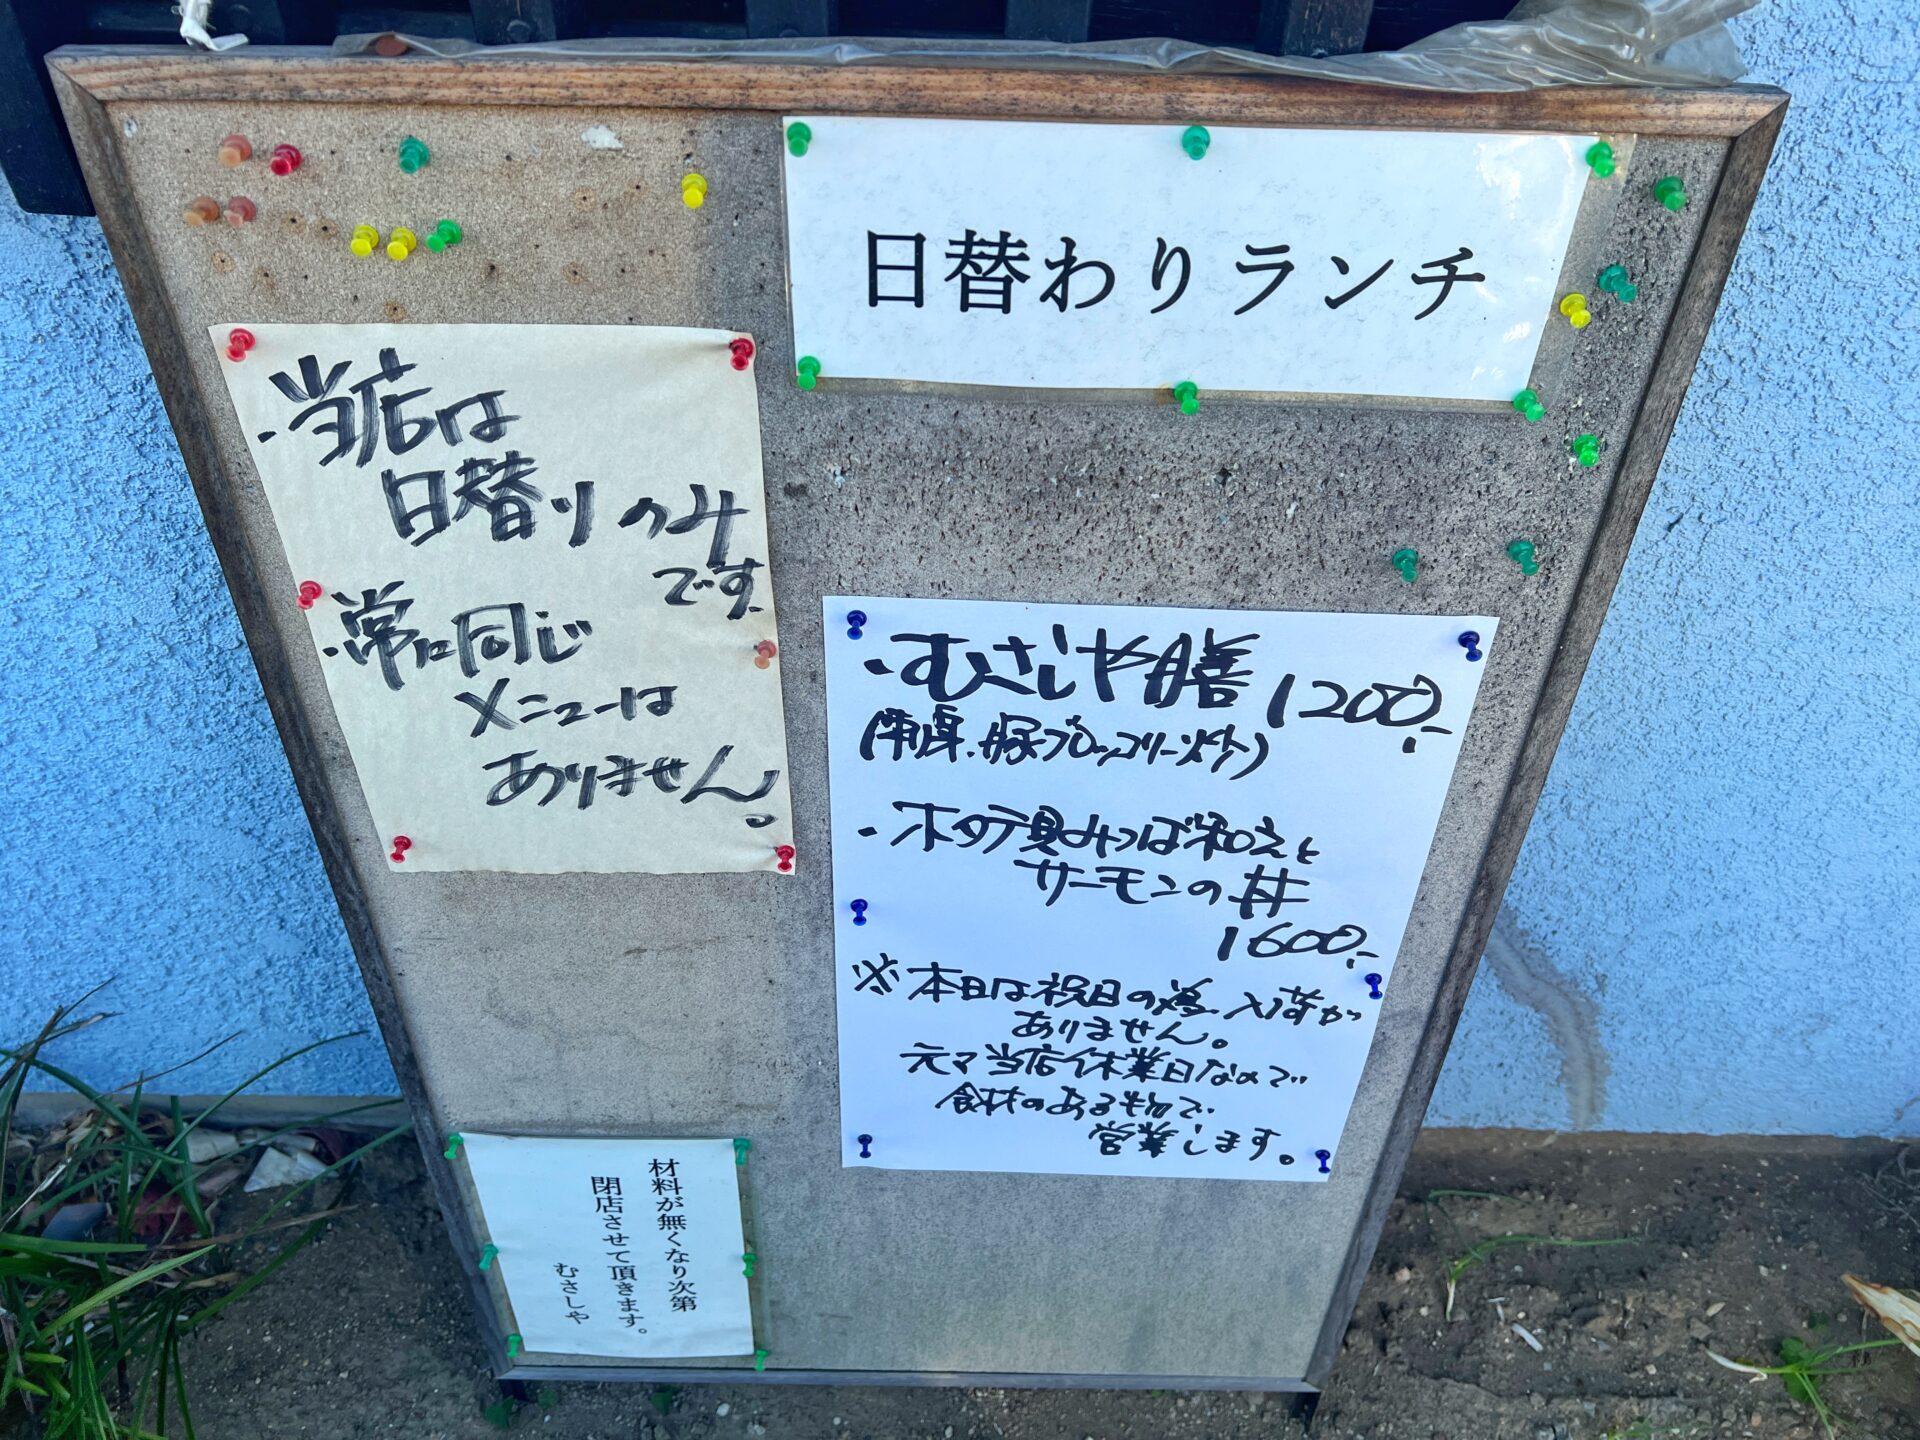 日替わりランチ
・当店は
日替りのみ
です。
・常に同じ
メニューは
ありません。
・むさしや膳 1200.-
(刺身、豚ブロッコリー炒)
・ホタテ貝みつば和えと
サーモンの丼
1600.-
※本日は祝日の為、入荷が
ありません。
元々当店休業日なので
食材のある物で
営業します。
材料が無くなり次第
閉店させて頂きます。
むさしや